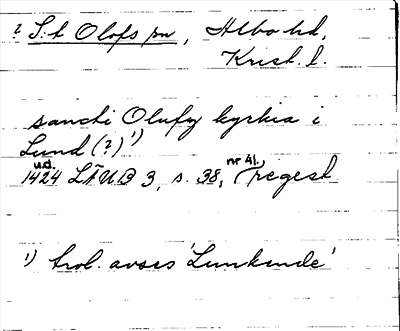 ? S:t Olofs sn, Albo hd,
Krist. l.
sancti Olufy kyrkia i
Lund (?) 1)
u.d.
1424 LÄUB 3, s. 38, nr 41, regest
1) trol. avses 'Lunkende'